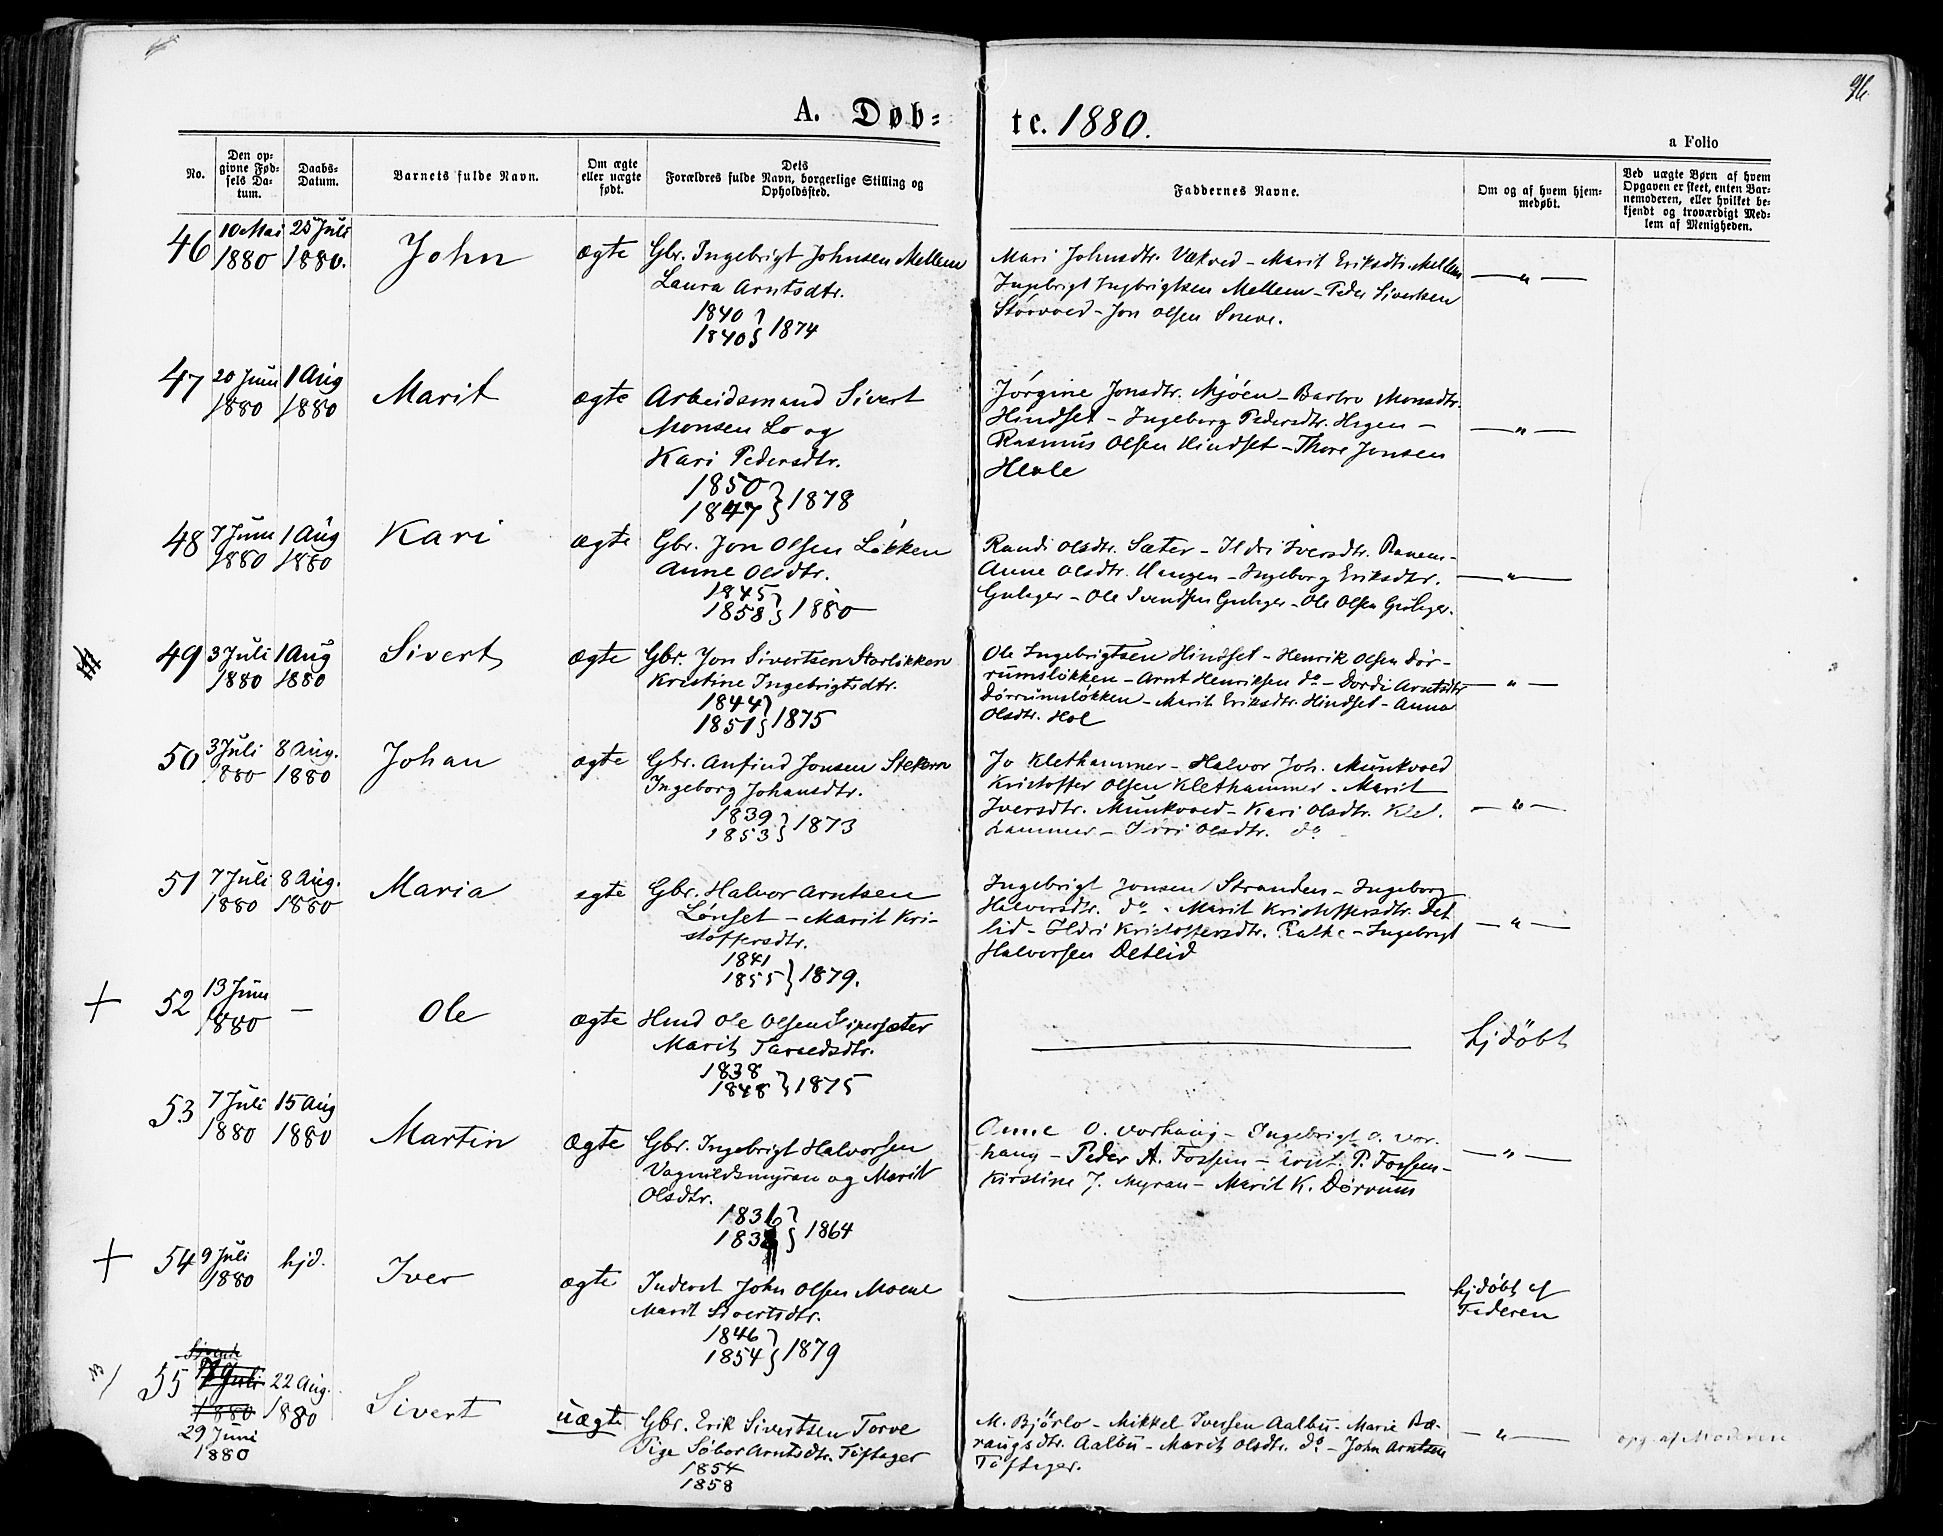 96
A. Døb-
te. 1880.
a Folio
No.
Den op-
givne Fød-
sels Da-
tum.
Daabs-
Datum.
Barnets fulde Navn.
Om ægte
eller uægte
født.
Dets
Forældres fulde Navn, borgerlige Stilling og
Opholdssted.
Faddernes Navne.
Om og af hvem hjem-
medøbt.
Ved uægte Børn af hvem
Opgaven er skeet, enten Bar-
nemoderen, eller hvilket be-
kjendt og troværdigt Med-
lem af Menigheden.
46 10 Mai 1880 25 Juli 1880. John ægte
Gbr. Ingebrigt Johnsen Mellem
Laura Arntsdtr.
1840
1840 } 1874
Mari Johnsdtr. Vækved - Marit Eriksdtr. Mellem
Ingebrigt Ingbrigtsen Mellem - Peder Sivertsen
Storvoed - Jon Olsen Sneve.
— " —
47 20 Juni 1880 1 Aug 1880 Marit ægte
Arbeidsmand Sivert
Monsen Lo og
Kari Pedersdtr.
1850
1847 } 1878
Jørgine Jonsdtr. Mjøen - Barbro Monsdtr.
Hindset - Ingeborg Pedersdtr. Hegen -
Rasmus Olsen Hindset - Thore Jonsen
Hevle
— " —
48 7 Juni 1880 1 Aug 1880 Kari ægte
Gbr. Jon Olsen Løkken
Anne Olsdtr.
1845
1858 } 1880
Randi Olsdtr. Sæter - Ildri Iversdtr. Ranem -
Anne Olsdtr. Haugen - Ingeborg Eriksdtr.
Gulager - Ole Svendsen Gulager - Ole Olsen Gulager.
— " —
49 3 Juli 1880 1 Aug 1880 Sivert ægte
Gbr. Jon Sivertsen Storløkken
Kristine Ingebrigtsdtr.
1844
1851 } 1875
Ole Ingebrigtsen Hindset - Henrik Olsen Dør-
rumsløkken - Arnt Henriksen do - Dordi Arntsdtr
Dørrumsløkken - Marit Eriksdtr. Hindset - Anna
Olsdtr. Hol
— " —
50 3 Juli 1880 8 Aug. 1880 Johan ægte
Gbr. Anfind Jonsen Stekern
Ingeborg Johansdtr.
1839
1853 } 1873
Jo Klethammer - Halvor Joh. Munkvoed
Kristoffer Olsen Klethammer - Marit
Iversdtr. Munkvoed - Kari Olsdtr. Klet-
hammer - Ildri Olsdtr. do
— " —
51 7 Juli 1880 8 Aug. 1880 Maria egte
Gbr. Halvor Arntsen
Lønset - Marit Kri-
stoffersdtr.
1841
1855 } 1879.
Ingebrigt Jonsen Stranden - Ingeborg
Halvorsdtr. do - Marit Kristoffersdtr. Det-
lid - Ildri Kristoffersdtr. Rathe - Ingebrigt
Halvorsen Detlid
— " —
+ 52 13 Juni 1880 — Ole ægte
Hmd Ole Olsen
Marit
1838
1848 } 1875
hjdøbt
53 7 Juli 1880 15 Aug 1880 Martin ægte
Gbr. Ingebrigt Halvorsen
Vagnildsmyran og Marit
Olsdtr.
1836
1838 } 1864
Anne O. Vorhaug - Ingebrigt O. Vor-
haug - Peder A. Fossem - P. Fossem -
Kirstine J. Myran - Marit K. Dørrum
— " —
+ 54 9 Juli 1880 hjd. Iver ægte
Inderst John Olsen Moene
Marit Sivertsdtr.
1846
1854 } 1879
hjdøbt af
Faderen
55 7 Juli 1880 29 Juni 1880 22 Aug. 1880 Sivert uægte
Gbr. Erik Sivertsen Torve
Pige Søbor Arntsdtr. Tøftager
1854
1858
M. Bjørlo - Mikkel Iversen Aalbu - Marie Bæ-
raugsdtr. Aalbu - Marit Olsdtr. do - John Arntsen
Tøftager.
— " —
opg. af Moderen